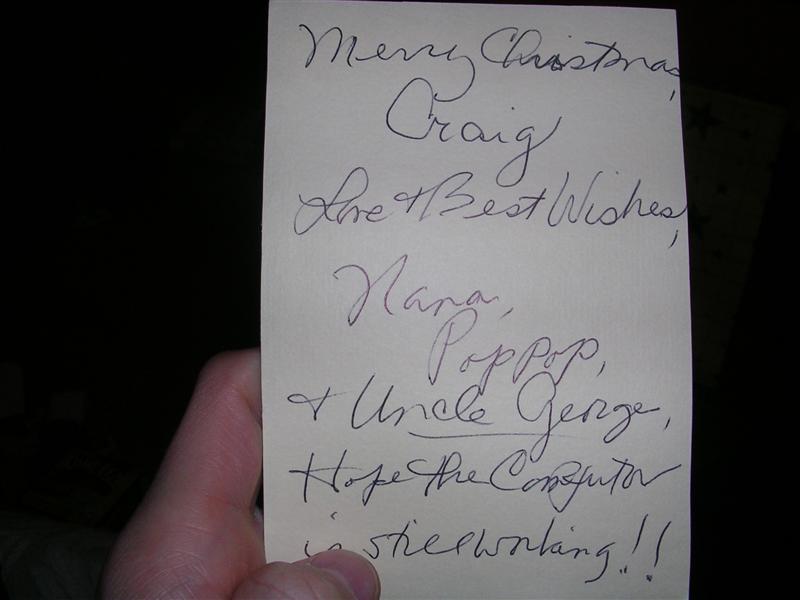 Merry Christmas,
Craig
Love + Best Wishes,
Nana,
Pop pop,
+ Uncle George,
Hope the Computor
is still working!!